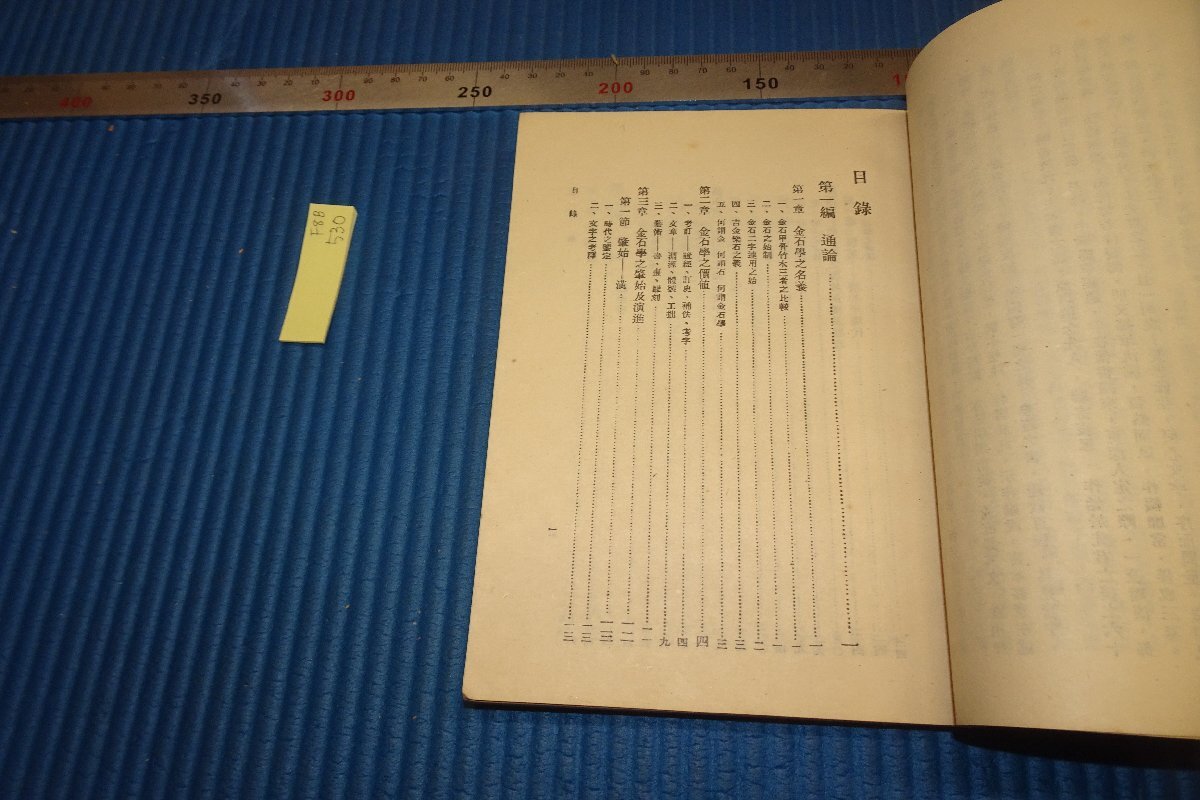 400 350 300 250 200 150
F8B
530
目錄
第一編 通論……一
第一章 金石學之名義……一
一、金石甲骨竹木三者之比較……一
二、金石之始制……一
三、金石二字連用之始……二
四、吉金樂石之義……三
五、何謂金 何謂石 何謂金石學……三
第二章 金石學之價值……四
一、考訂——證經、訂史、補佚、考字……四
二、文章——淵源、體製、工拙……九
三、藝術——書、畫、雕刻
第三章 金石學之肇始及演進……一一
第一節 肇始——漢……一二
一、時代之鑒定……一二
二、文字之考釋
目錄
一